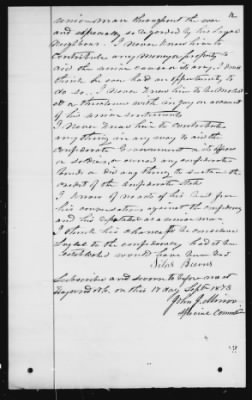 union man throughout the war
and as so regarded by his loyal
neighbours. I never knew him to
contribute any money or property to
aid the union cause or Army. I dont
think he ever had an opportunity to
do so. I never knew him to be molest
ed or threatened with injury on account
of his union sentiments
I never knew him to contribute
any thing in any way to aid the
confederate Government or its officers
or soldiers, or owned any confederate
bonds or did any thing to sustain the
credit of the confederate states
I know of nothing of his but from
his conversations against the confederacy
and his reputation as a union man
I think his chance to be considered
loyal to the confederacy had it been
established would have been bad
Silas Burns
Subscribed and sworn to before me at
on this 17 day Sept 1873
John J.
Special Commr